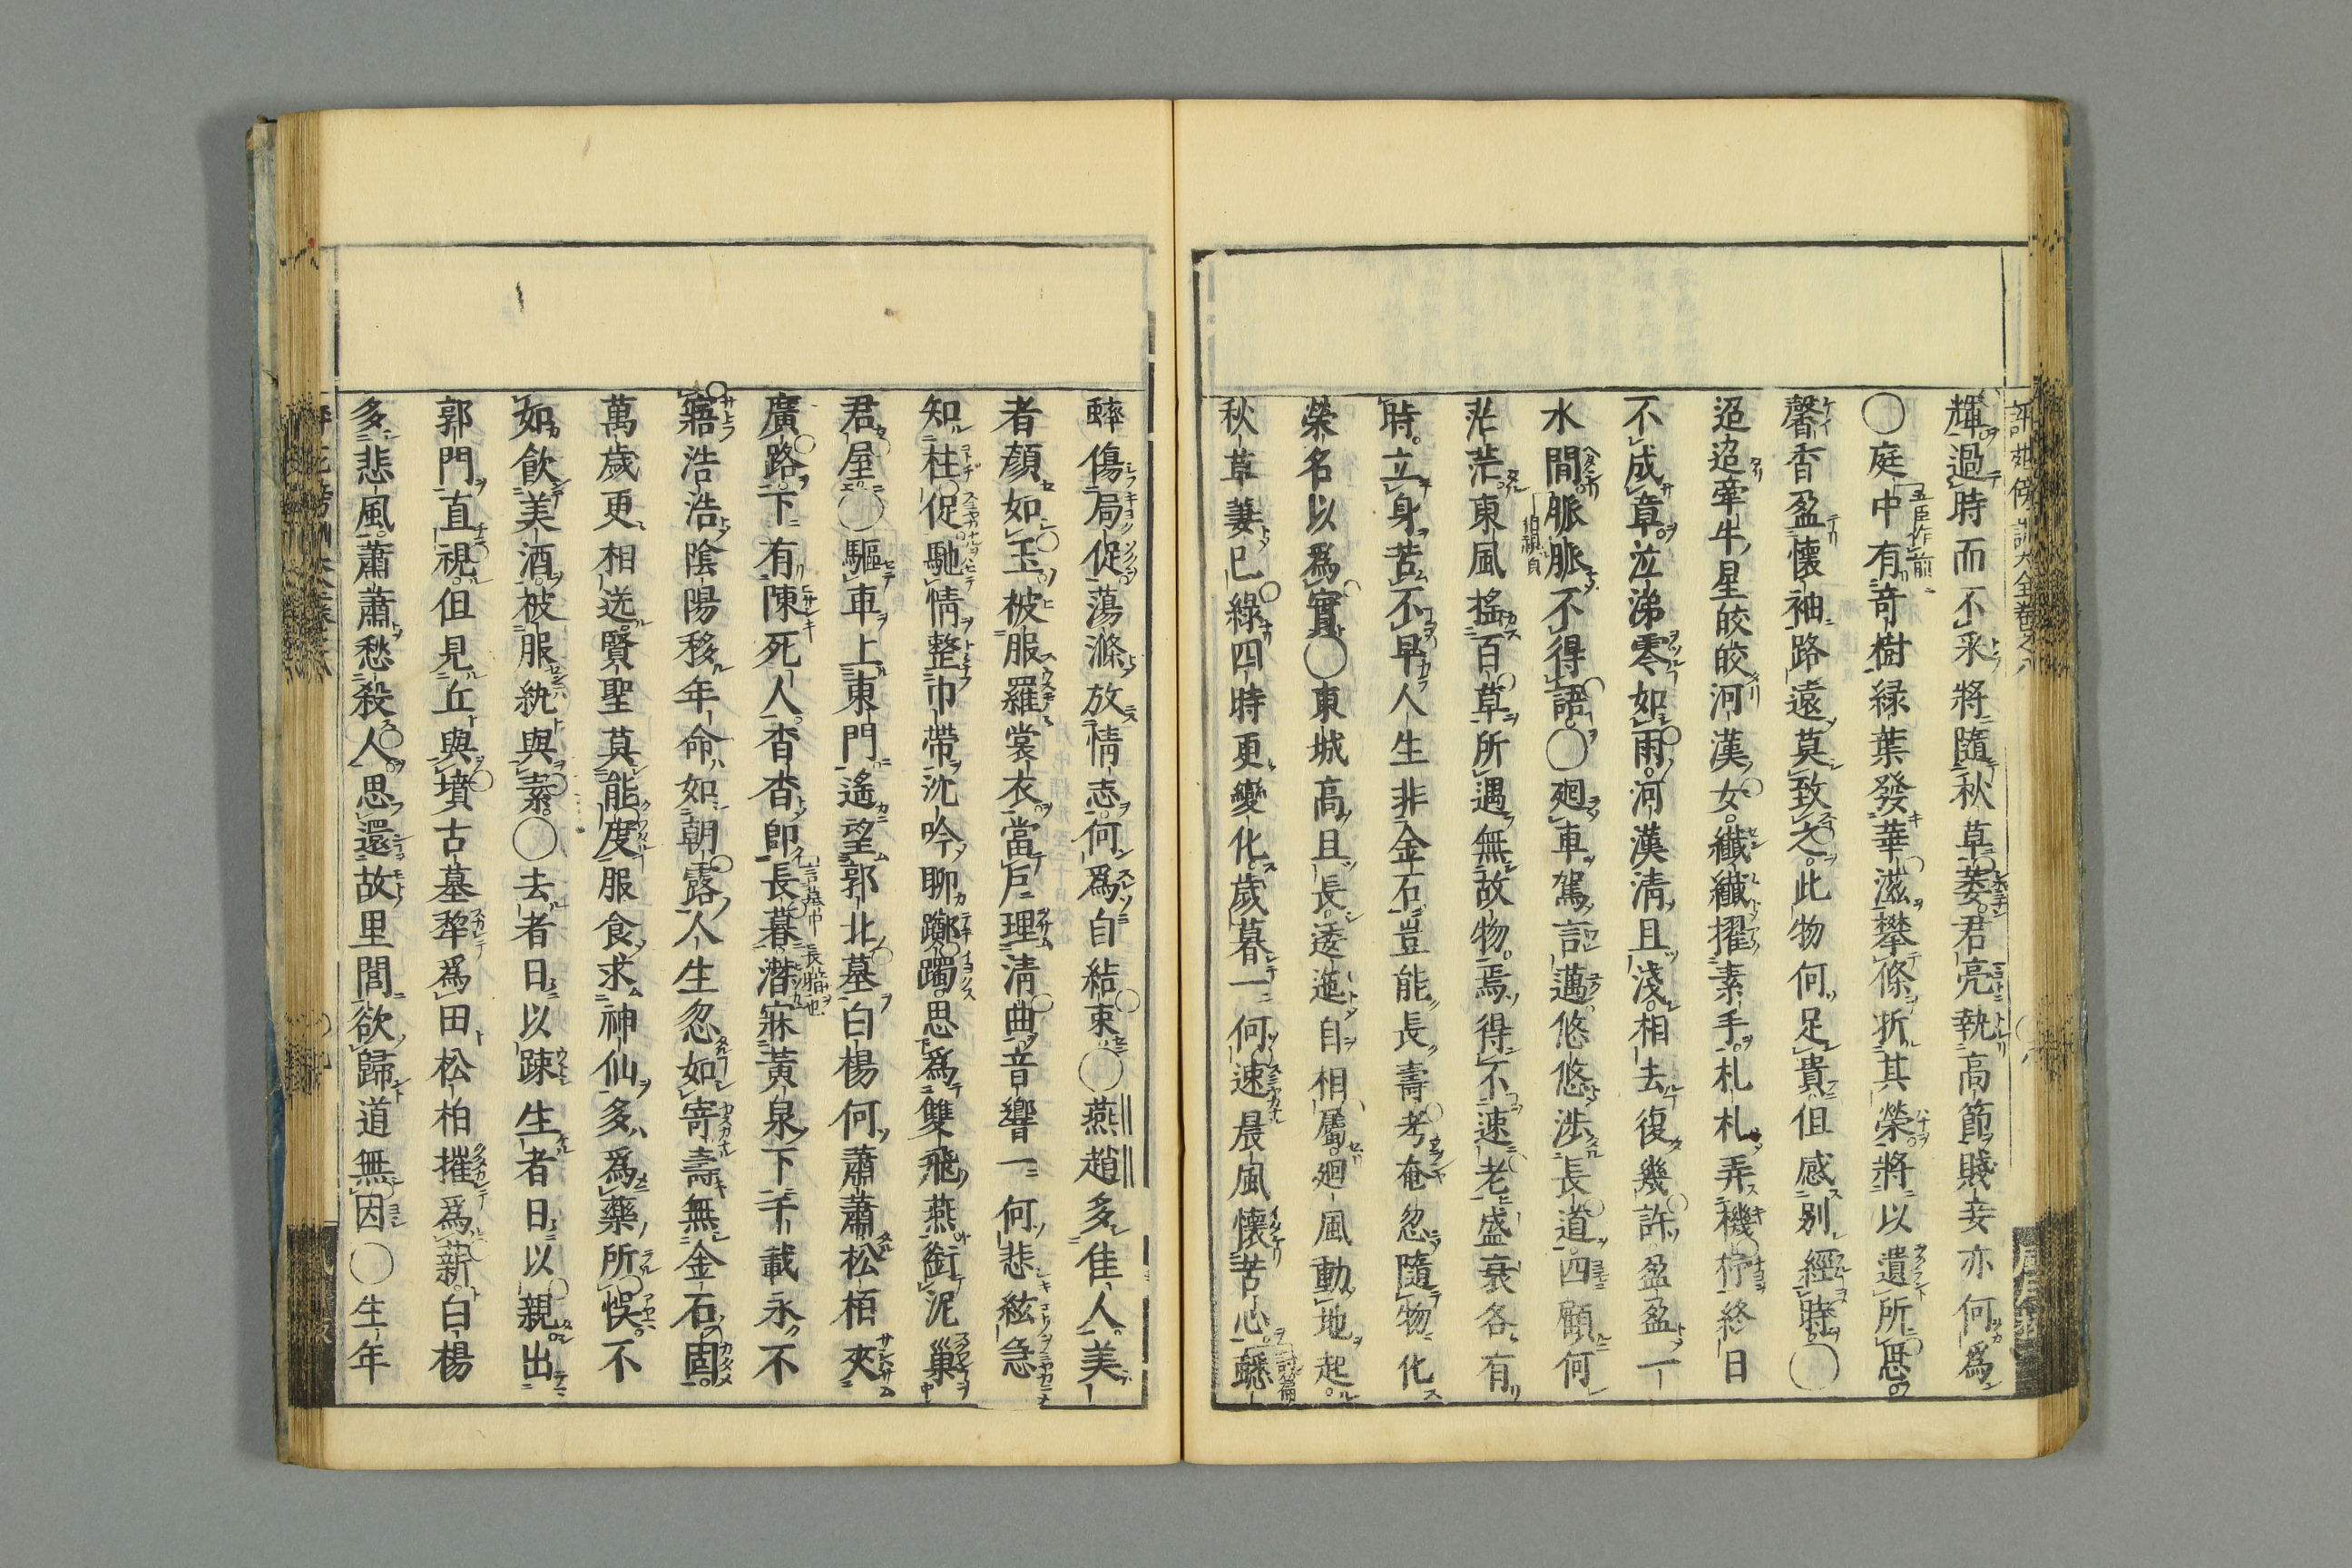 輝過時而不采將隨秋草萎君亮執高節賤妾亦何爲
〇庭中有奇樹緑葉發華滋攀條折其榮將以遺所思
五臣作前
馨香盈懷袖路遠莫致之此物何足貴但感别經時〇
迢迢牽牛星皎皎河漢女纖纖擢素手札札弄機杼終日
不成章泣涕零如雨河漢淸且淺相去復幾許盈盈一
水間脈脈不得語〇廻車駕言邁悠悠渉長道四顧何
茫茫東風搖百草所遇無故物焉得不速老盛衰各有
時立身苦不早人生非金石豈能長壽考奄忽隨物化
榮名以爲寶〇東城高且長逶迤自相屬廻風動地起
秋草萋已緑四時更變化歲暮一何速晨風懷苦心蟋
蟀傷局促蕩滌放情志何爲自結束〇燕趙多佳人美
者顔如玉被服羅裳衣當戸理淸曲音響一何悲絃急
知柱促馳情整巾帶沈吟聊躑躅思爲雙飛燕銜泥巢
君屋〇驅車上東門遙望郭北墓白楊何蕭蕭松栢夾
廣路下有陳死人杳杳卽長暮潛寐黃泉下千載永不
寤浩浩陰陽移年命如朝露人生忽如寄壽無金石固
萬歲更相送賢聖莫能度服食求神仙多爲藥所悞不
如飮美酒被服紈與素〇去者日以疎生者日以親出
郭門直視但見丘與墳古墓犂爲田松柏摧爲薪白楊
多悲風蕭蕭愁殺人思還故里閭欲歸道無因〇生年